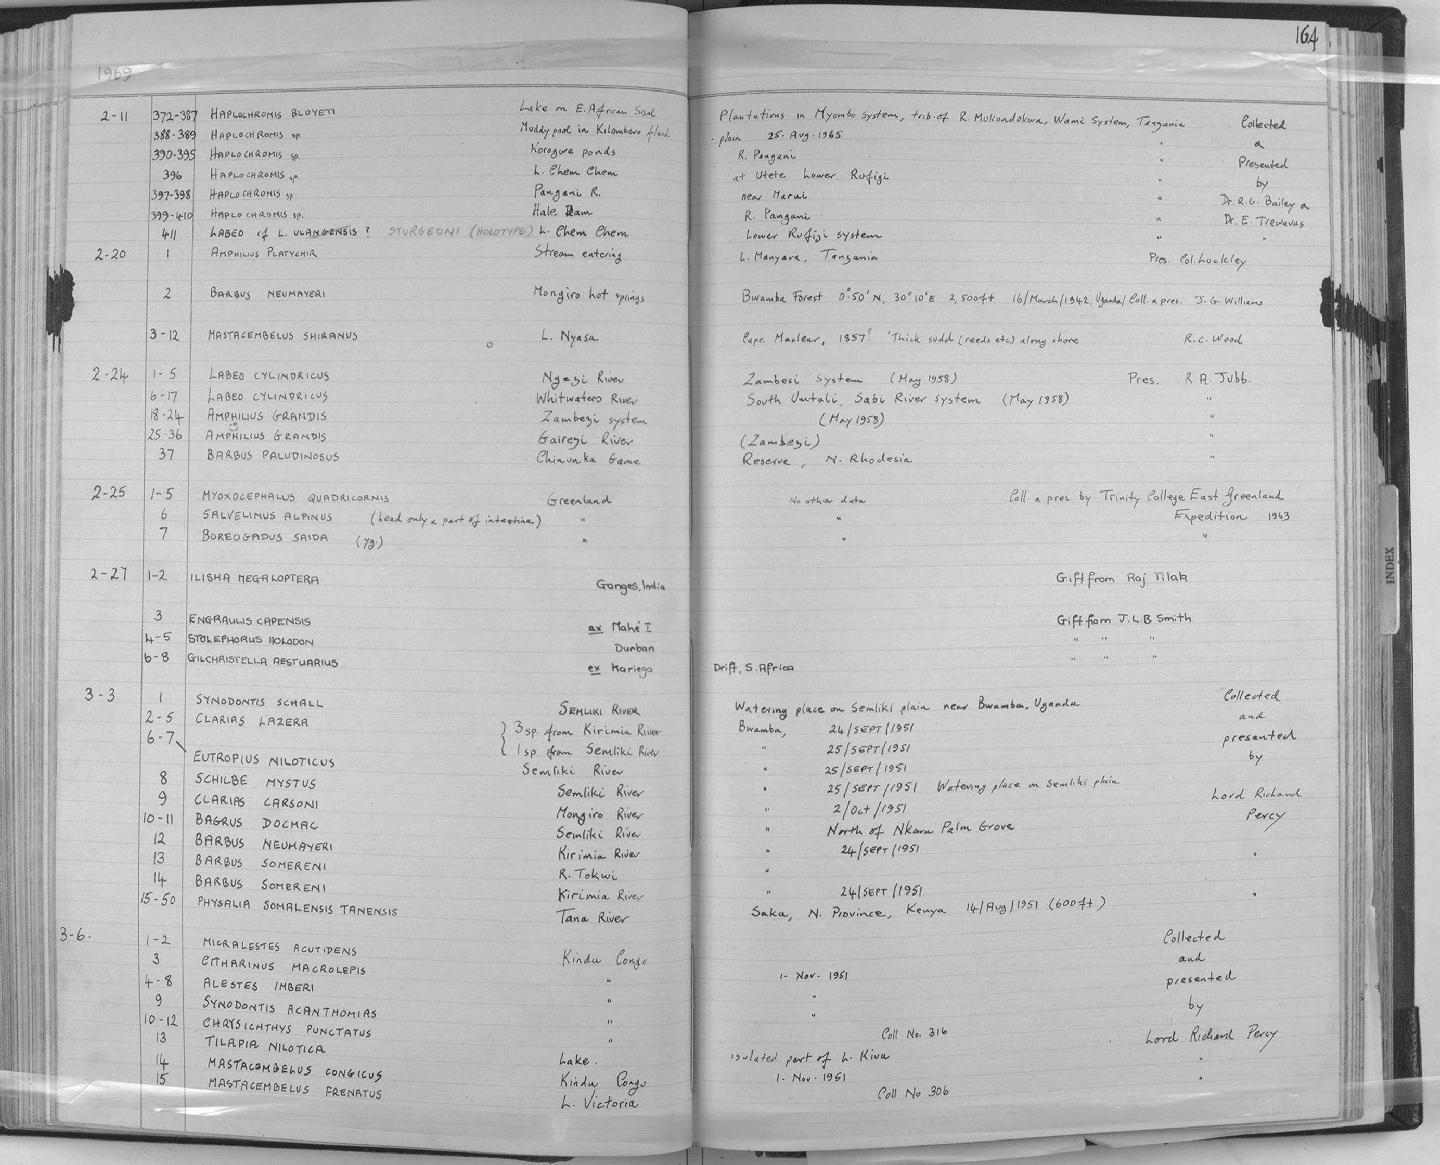 164
1969
2-11 372-387 HAPLOCHROMIS BLOYETI Lake on E. African Sisal Plantations in Myombo System, trib. of R. Mukondokwa, Wami System, Tangania Collected
388-389 HAPLOCHROMIS sp. Muddy pool in Kilombero flood- plain 25. Aug. 1965 " &
390-395 HAPLOCHROMIS sp. Korogwe ponds R. Pangani " Presented
396 HAPLOCHROMIS sp. L. Chem Chem at Utete Lower Rufigi by
397-398 HAPLOCHROMIS sp Pangani R. near Maru " Dr. R.G. Bailey &
399-410 HAPLOCHROMIS sp. Hale Dam R. Pangani " Dr. E. Trewavas
411 LABEO cf L. ULANGENSIS ? STURGEONI (HOLOTYPE) L. Chem Chem Lower Rufiji system " "
2-20 1 AMPHILIUS PLATYCHIR Stream entering L. Manyara, Tangania Pres. Col. Luckley
2 BARBUS NEUMAYERI Mongiro hot springs Bwamba Forest 0°50' N, 30°10'E 2,500ft 16/March/1942, Uganda/Coll. & pres. J.G. Williams
3-12 MASTACEMBELUS SHIRANUS L. Nyasa Cape Maclear, 1957? 'Thick sudd (reeds etc) along shore R.C. Wood
2-24 1-5 LABEO CYLINDRICUS Ngezi River Zambesi System (May 1958) Pres. R.A. Jubb.
6-17 LABEO CYLINDRICUS Whitwaters River South Umtali, Sabi River system (May 1958) "
18-24 AMPHILIUS GRANDIS Zambezi system (May 1958) "
25-36 AMPHILIUS GRANDIS Gairezi River (Zambezi) "
37 BARBUS PALUDINOSUS Chinunka Game Reserve, N. Rhodesia "
2-25 1-5 MYOXOCEPHALUS QUADRICORNIS Greenland No other data Coll & pres. by Trinity College East Greenland
6 SALVELINUS ALPINUS (head only & part of intestine) " " Expedition 1963
7 BOREOGADUS SAIDA (yg.) " " "
2-27 1-2 ILISHA MEGALOPTERA Ganges, India Gift from Raj Tilak
3 ENGRAULIS CAPENSIS ex Mahé I Gift from J.L.B Smith
4-5 STOLEPHORUS HOLODON Durban " " "
6-8 GILCHRISTELLA AESTUARIUS ex Kariega Drift, S. Africa " " "
3-3 1 SYNODONTIS SCHALL SEMLIKI RIVER Watering place on Semliki plain near Bwamba, Uganda Collected
2-5 CLARIAS LAZERA } 3 sp. from Kirimia River Bwamba, 24/SEPT/1951 and
6-7 { 1 sp from Semliki River " 25/SEPT/1951 presented
EUTROPIUS NILOTICUS Semliki River " 25/SEPT/1951 by
8 SCHILBE MYSTUS Semliki River " 25/SEPT/1951 Watering place on Semliki plain
9 CLARIAS CARSONI Mongiro River " 2/Oct/1951 Lord Richard
10-11 BAGRUS DOCMAC Semliki River " North of Nkara Palm Grove Percy
12 BARBUS NEUMAYERI Kirimia River " 24/SEPT/1951
13 BARBUS SOMERENI R. Tokwi " "
14 BARBUS SOMERENI Kirimia River " 24/SEPT/1951 "
15-50 PHYSALIA SOMALENSIS TANENSIS Tana River Saka, N. Province, Kenya 14/Aug/1951 (600ft)
3-6. 1-2 MICRALESTES ACUTIDENS Kindu Congo Collected
3 CITHARINUS MACROLEPIS " 1- Nov- 1951 and
4-8 ALESTES IMBERI " " presented
9 SYNODONTIS ACANTHOMIAS " " by
10-12 CHRYSICHTHYS PUNCTATUS " Coll No. 316 Lord Richard Percy
13 TILAPIA NILOTICA Lake. isolated part of L. Kivu "
14 MASTACEMBELUS CONGICUS Kindu Congo 1- Nov- 1951 "
15 MASTACEMBELUS FRENATUS L. Victoria Coll No 306
INDEX